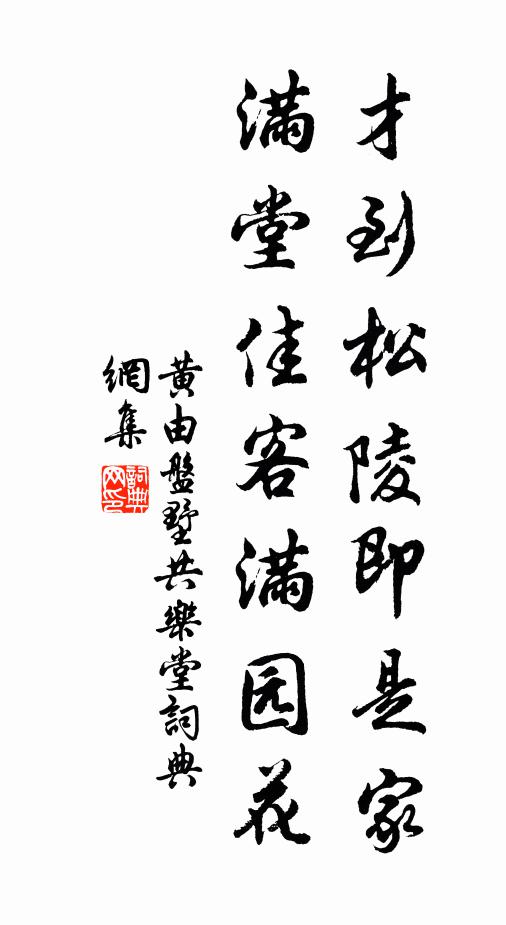 才到松陵即是家
满堂佳客满园花
黄由盤墅共樂堂詞典
網集
詞典
网印